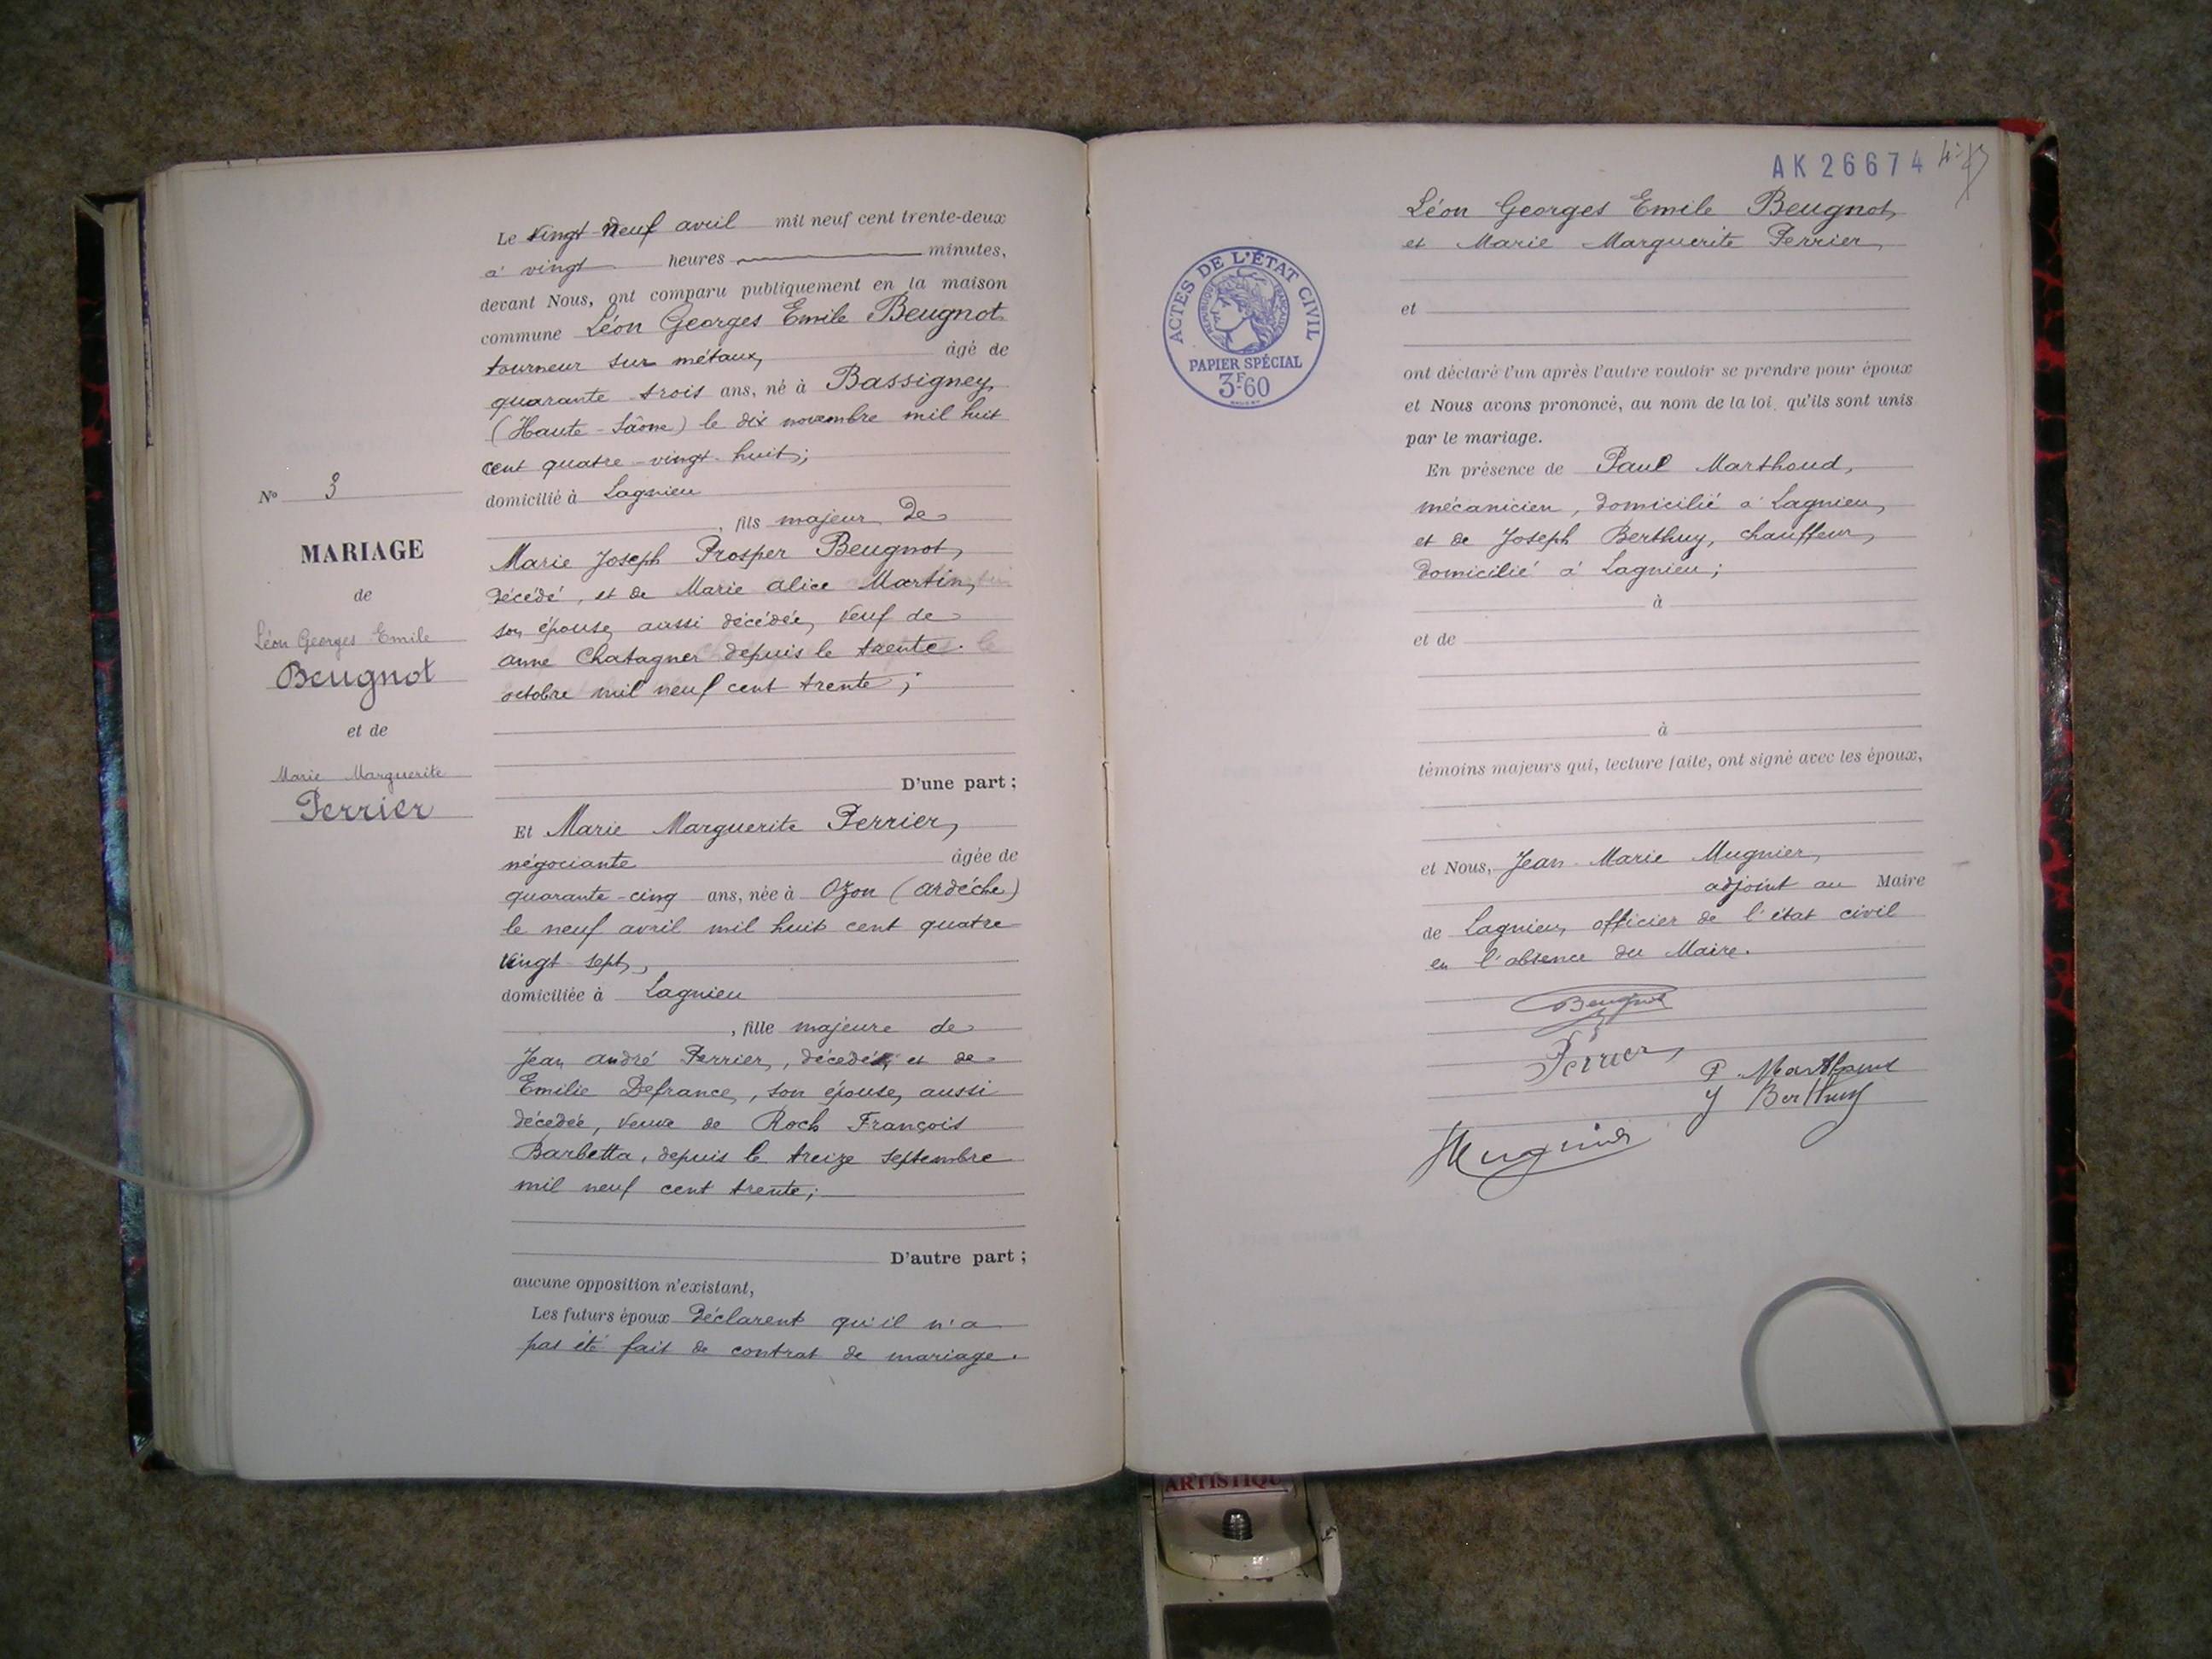 N° 3
MARIAGE
de
Léon Georges Emile
Beugnot
et de
Marie Marguerite
Perrier
Le vingt-neuf avril mil neuf cent trente-deux
à vingt heures minutes,
devant Nous, ont comparu publiquement en la maison
commune Léon Georges Emile Beugnot
tourneur sur métaux, âgé de
quarante trois ans, né à Bassigney,
(Haute-Saône) le dix novembre mil huit
cent quatre-vingt-huit;
domicilié à Lagnieu
, fils majeur de
Marie Joseph Prosper Beugnot,
décédé, et de Marie Alice Martin,
son épouse, aussi décédée, veuf de
Anne Chatagner depuis le trente
octobre mil neuf cent trente;
D'une part;
Et Marie Marguerite Perrier,
négociante âgée de
quarante-cinq ans, née à Ozon (Ardèche)
le neuf avril mil huit cent quatre
vingt-sept,
domiciliée à Lagnieu
, fille majeure de
Jean André Perrier, décédé, et de
Emilie Defrance, son épouse, aussi
décédée, veuve de Roch François
Barbetta, depuis le treize septembre
mil neuf cent trente;
D'autre part;
aucune opposition n'existant,
Les futurs époux déclarent qu'il n'a
pas été fait de contrat de mariage.
AK 26674
ACTES DE L'ÉTAT CIVIL
RÉPUBLIQUE FRANÇAISE
PAPIER SPÉCIAL
3F-60
Léon Georges Emile Beugnot,
et Marie Marguerite Perrier,
et
ont déclaré l'un après l'autre vouloir se prendre pour époux
et Nous avons prononcé, au nom de la loi, qu'ils sont unis
par le mariage.
En présence de Paul Marthoud,
mécanicien, domicilié à Lagnieu,
et de Joseph Berthuy, chauffeur,
domicilié à Lagnieu;
à
et de
à
témoins majeurs qui, lecture faite, ont signé avec les époux,
et Nous, Jean-Marie Mugnier,
adjoint au Maire
de Lagnieu, officier de l'état civil
en l'absence du Maire.
Beugnot
Perrier
P. Marthoud
J Berthuy
Mugnier
ARTISTIQUE